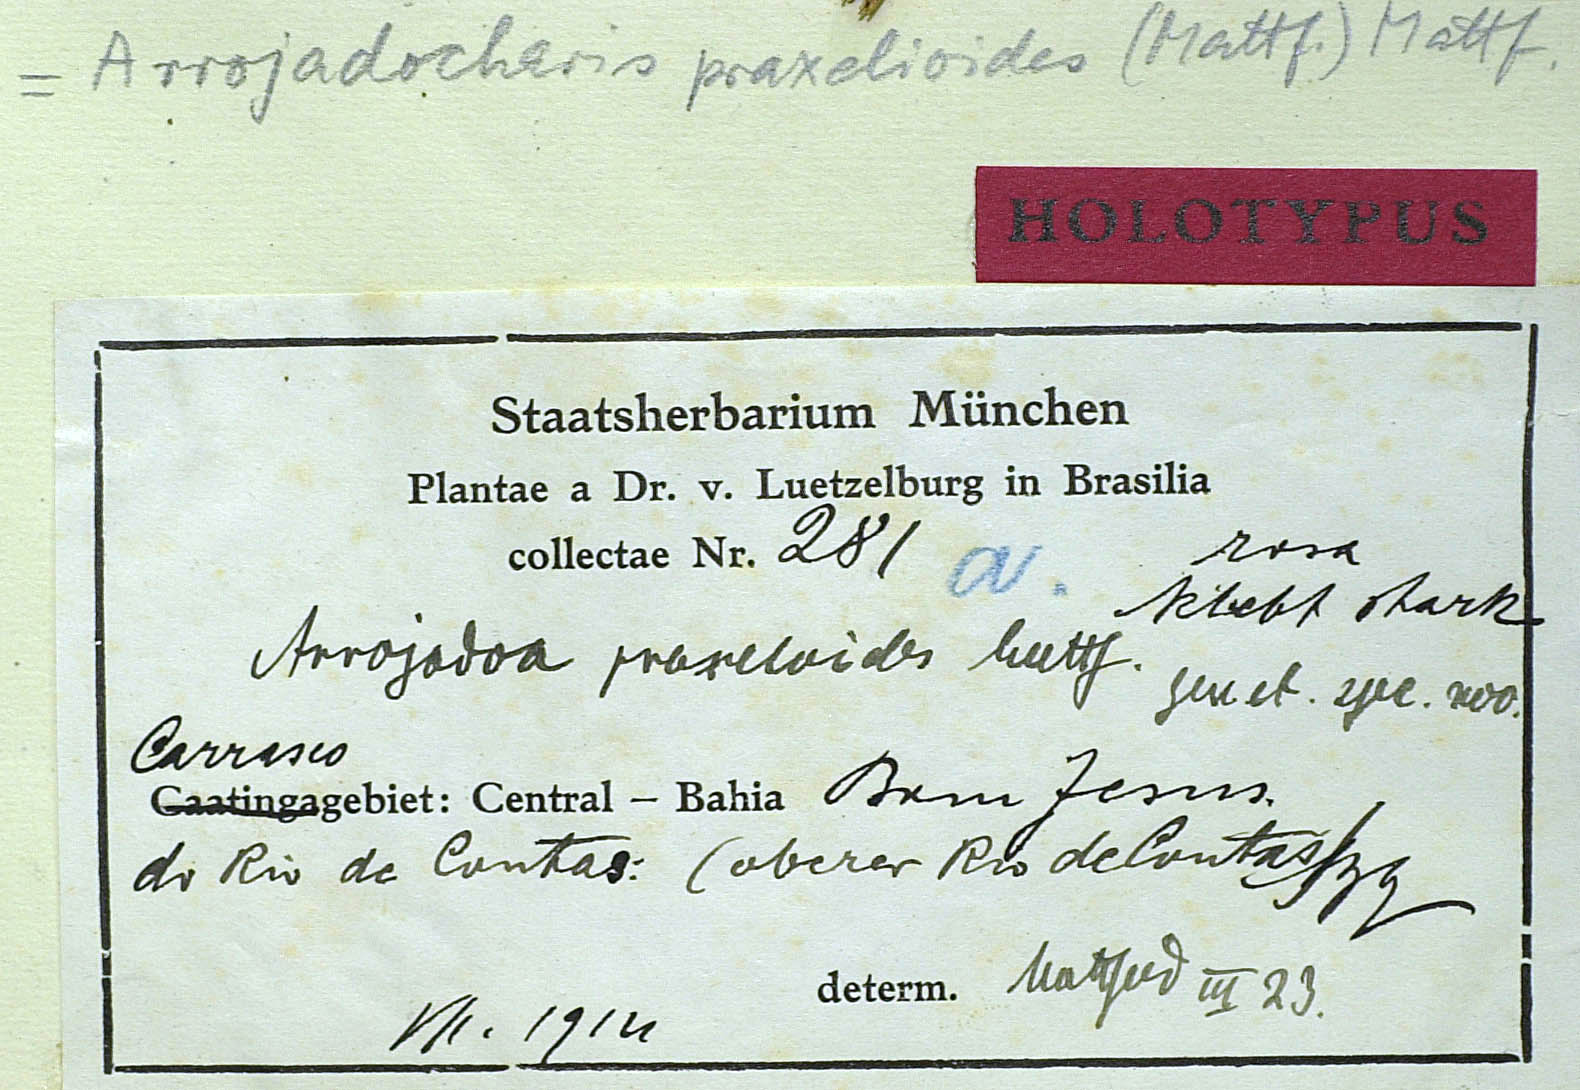 = Arrojadocharis praxelioides (Mattf.) Mattf.
HOLOTYPUS
Staatsherbarium München
Plantae a Dr. v. Luetzelburg in Brasilia
collectae Nr. 281 a.
rosa
klebt stark
Arrojadoa praxelioides Mattf.
gen et. spec. nov.
Carrasco
Caatingagebiet: Central – Bahia Bom Jesus.
do Rio de Contas: (oberer Rio de Contas)
determ. Mattfeld III 23.